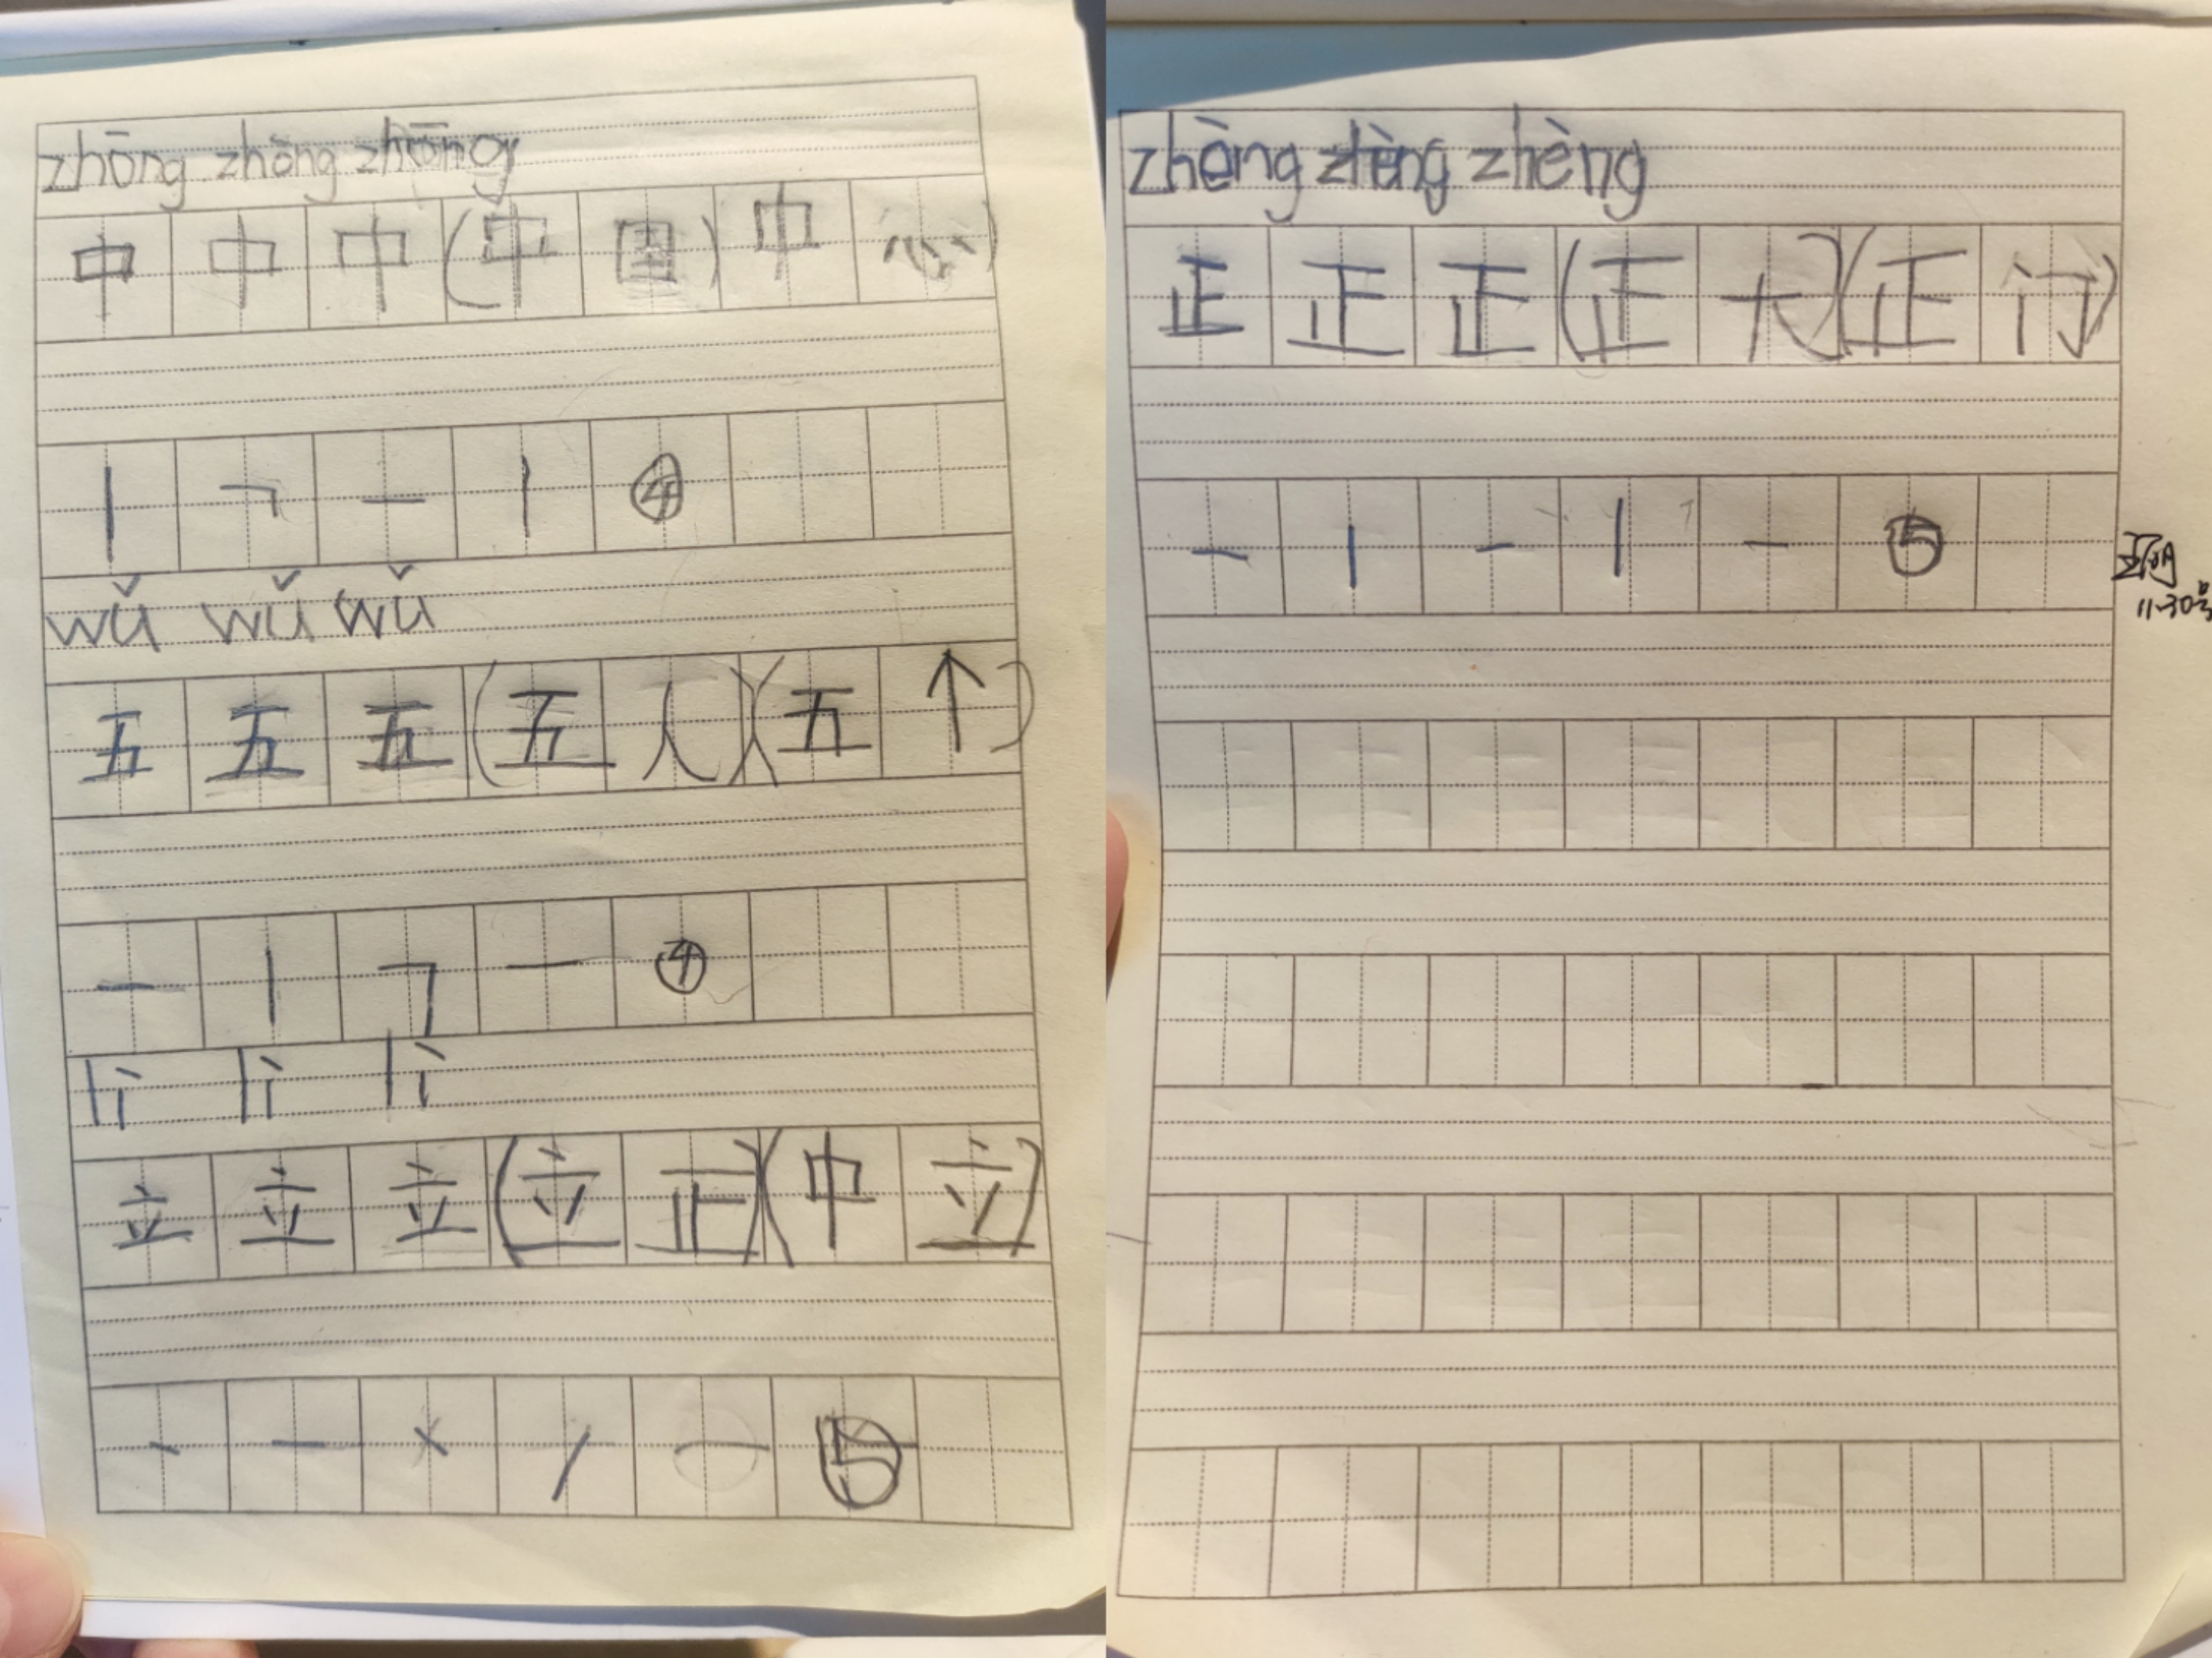 zhōng zhōng zhōng
中 中 中 (中 国) 中 心)
丨 ㇕ 一 丨 ④
wǔ wǔ wǔ
五 五 五 (五 人)(五 个)
一 丨 ㇕ 一 ④
lì lì lì
立 立 立 (立 正)(中 立)
丶 一 丶 丿 一 ⑤
zhèng zhèng zhèng
正 正 正 (正 大)(正 门)
一 丨 一 丨 一 ⑤
11.30号